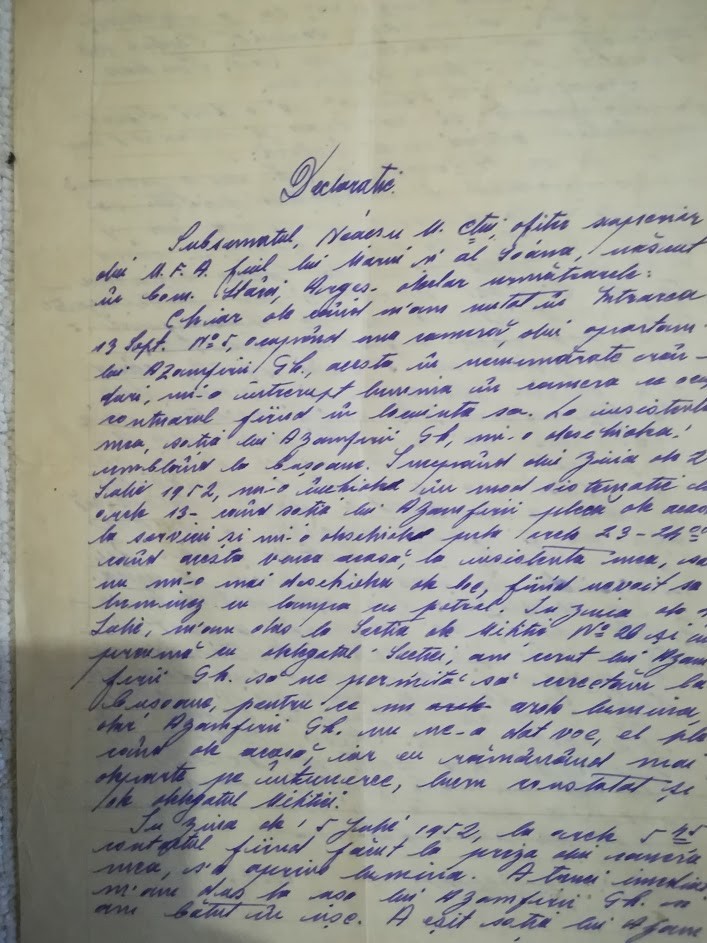 Declarație.
Subsemnatul, Neacșu M. Ctin, ofițer superior
din M.F.A. fiul lui Marin și al Ioana, născut
în Com. Argeș. declar următoarele:
Chiar de când m'am mutat în Intrarea
13 Sept. No 5, ocupând una cameră, din apartam-
lui Azamfirii Gh., acesta în nenumărate rân-
duri, mi-o întrerupt lumina în camera ce ocup
contuarul fiind în locuința sa. La insistențele
mea, soția lui Azamfirii Gh, mi-o deschidea,
umblând la busoane. Începând din ziua de 2
Iulie 1952, mi-o închidea în mod sistematic la
orele 13- când soția lui Azamfirii pleca de acasă
la serviciu și mi-o deschidea prela orele 23-24 00
când acesta venea acasă, la insistența mea, sau
nu mi-o mai deschidea de loc, fiind nevoit să
luminez cu lampa cu petrol. În ziua de
Iulie, m'am dus la Secția de Miliție No 26 și îm
preună cu delegatul Secției, am cerut lui Azam
firii Gh. să ne permită să cercetăm la
busoane, pentru ce nu arde lumina,
dar Azamfirii Gh. nu ne-a dat voe, el ple
când de acasă, iar eu rămânând mai
departe pe întunerec, lucru constatat și
de delegatul Miliției.
În ziua de 5 Iulie 1952, la orele 5 45
contactul fiind făcut la priza din camera
mea, s'a aprins lumina. Atunci imediat
m'am dus la ușa lui Azamfirii Gh. și
am bătut în ușe. A eșit soția lui Azam